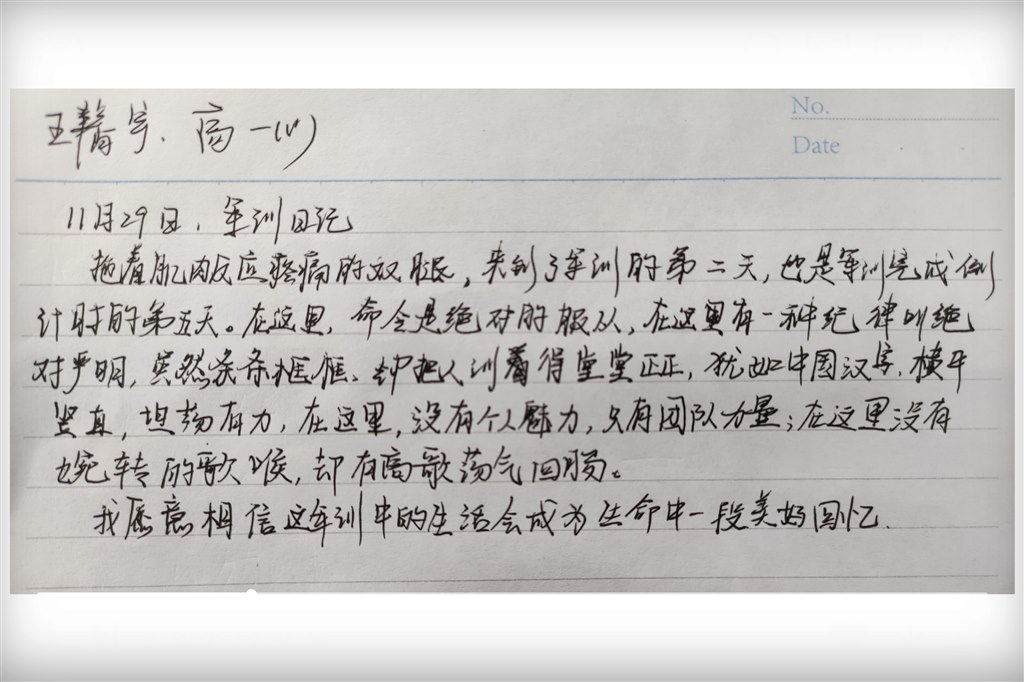 王馨宇. 高一(1)
No.
Date
11月29日, 军训日记
拖着肌肉反应疼痛的双腿, 来到了军训的第二天, 也是军训完成倒
计时的第五天。在这里, 命令是绝对的服从, 在这里有一种纪律叫绝
对严明, 虽然条条框框、却把人训着得堂堂正正, 犹如中国汉字, 横平
竖直, 坦荡有力, 在这里, 没有个人魅力, 只有团队力量; 在这里没有
婉转的歌喉, 却有高歌荡气回肠。
我愿意相信这军训中的生活会成为生命中一段美好回忆.